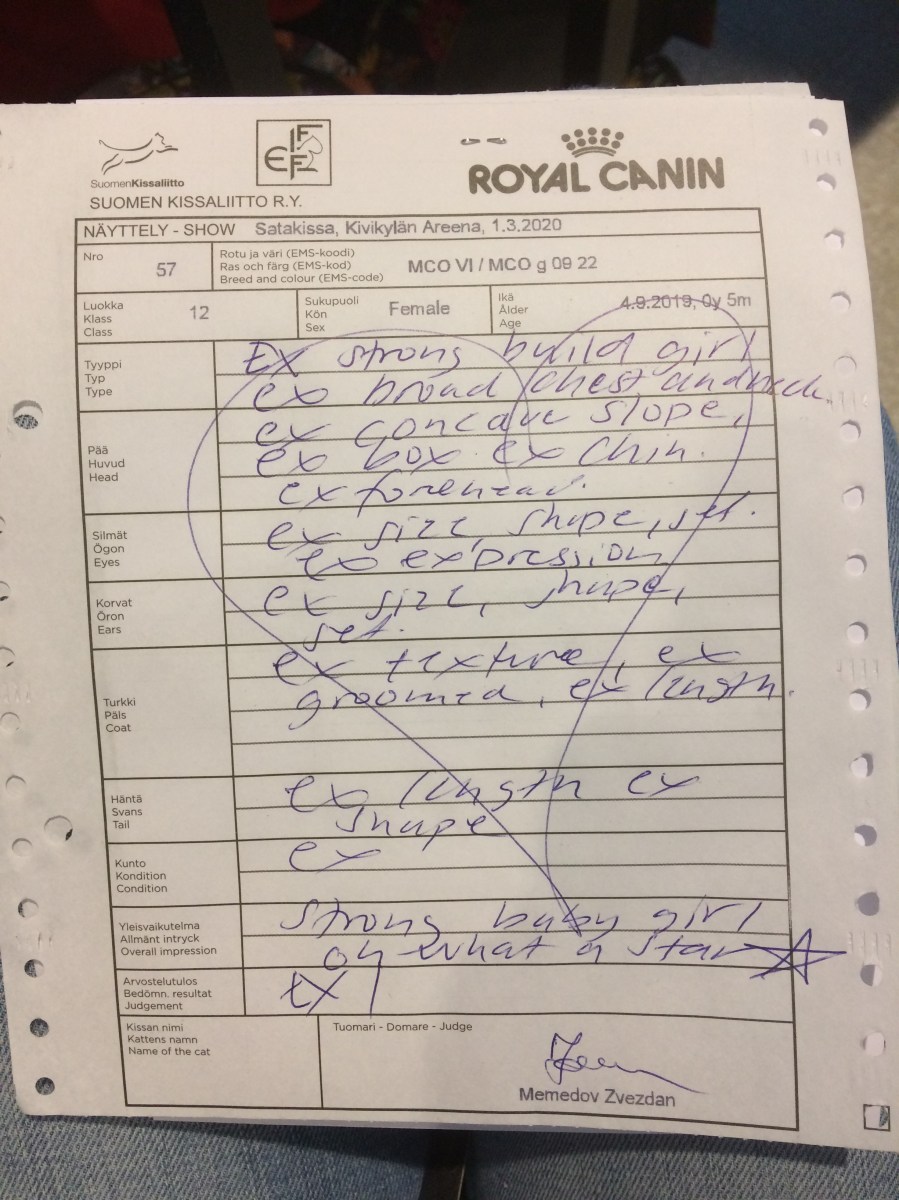 SuomenKissaliitto
FIFe
ROYAL CANIN
SUOMEN KISSALIITTO R.Y.
NÄYTTELY - SHOW Satakissa, Kivikylän Areena, 1.3.2020
Nro 57
Rotu ja väri (EMS-koodi)
Ras och färg (EMS-kod)
Breed and colour (EMS-code)
MCO VI / MCO g 09 22
Luokka
Klass
Class
12
Sukupuoli
Kön
Sex
Female
Ikä
Ålder
Age
4.9.2019, 0y 5m
Tyyppi
Typ
Type
Ex strong build girl
ex broad chest, and neck.
Pää
Huvud
Head
ex concave slope,
ex box ex chin.
ex forehead.
Silmät
Ögon
Eyes
ex size, shape, set.
ex expression
Korvat
Öron
Ears
ex size, shape,
set.
Turkki
Päls
Coat
ex texture, ex
groomed, ex length.
Häntä
Svans
Tail
ex length ex
shape
Kunto
Kondition
Condition
ex
Yleisvaikutelma
Allmänt intryck
Overall impression
strong baby girl
oh what a star
Arvostelutulos
Bedömn. resultat
Judgement
EX 1
Kissan nimi
Kattens namn
Name of the cat
Tuomari - Domare - Judge
Memedov Zvezdan